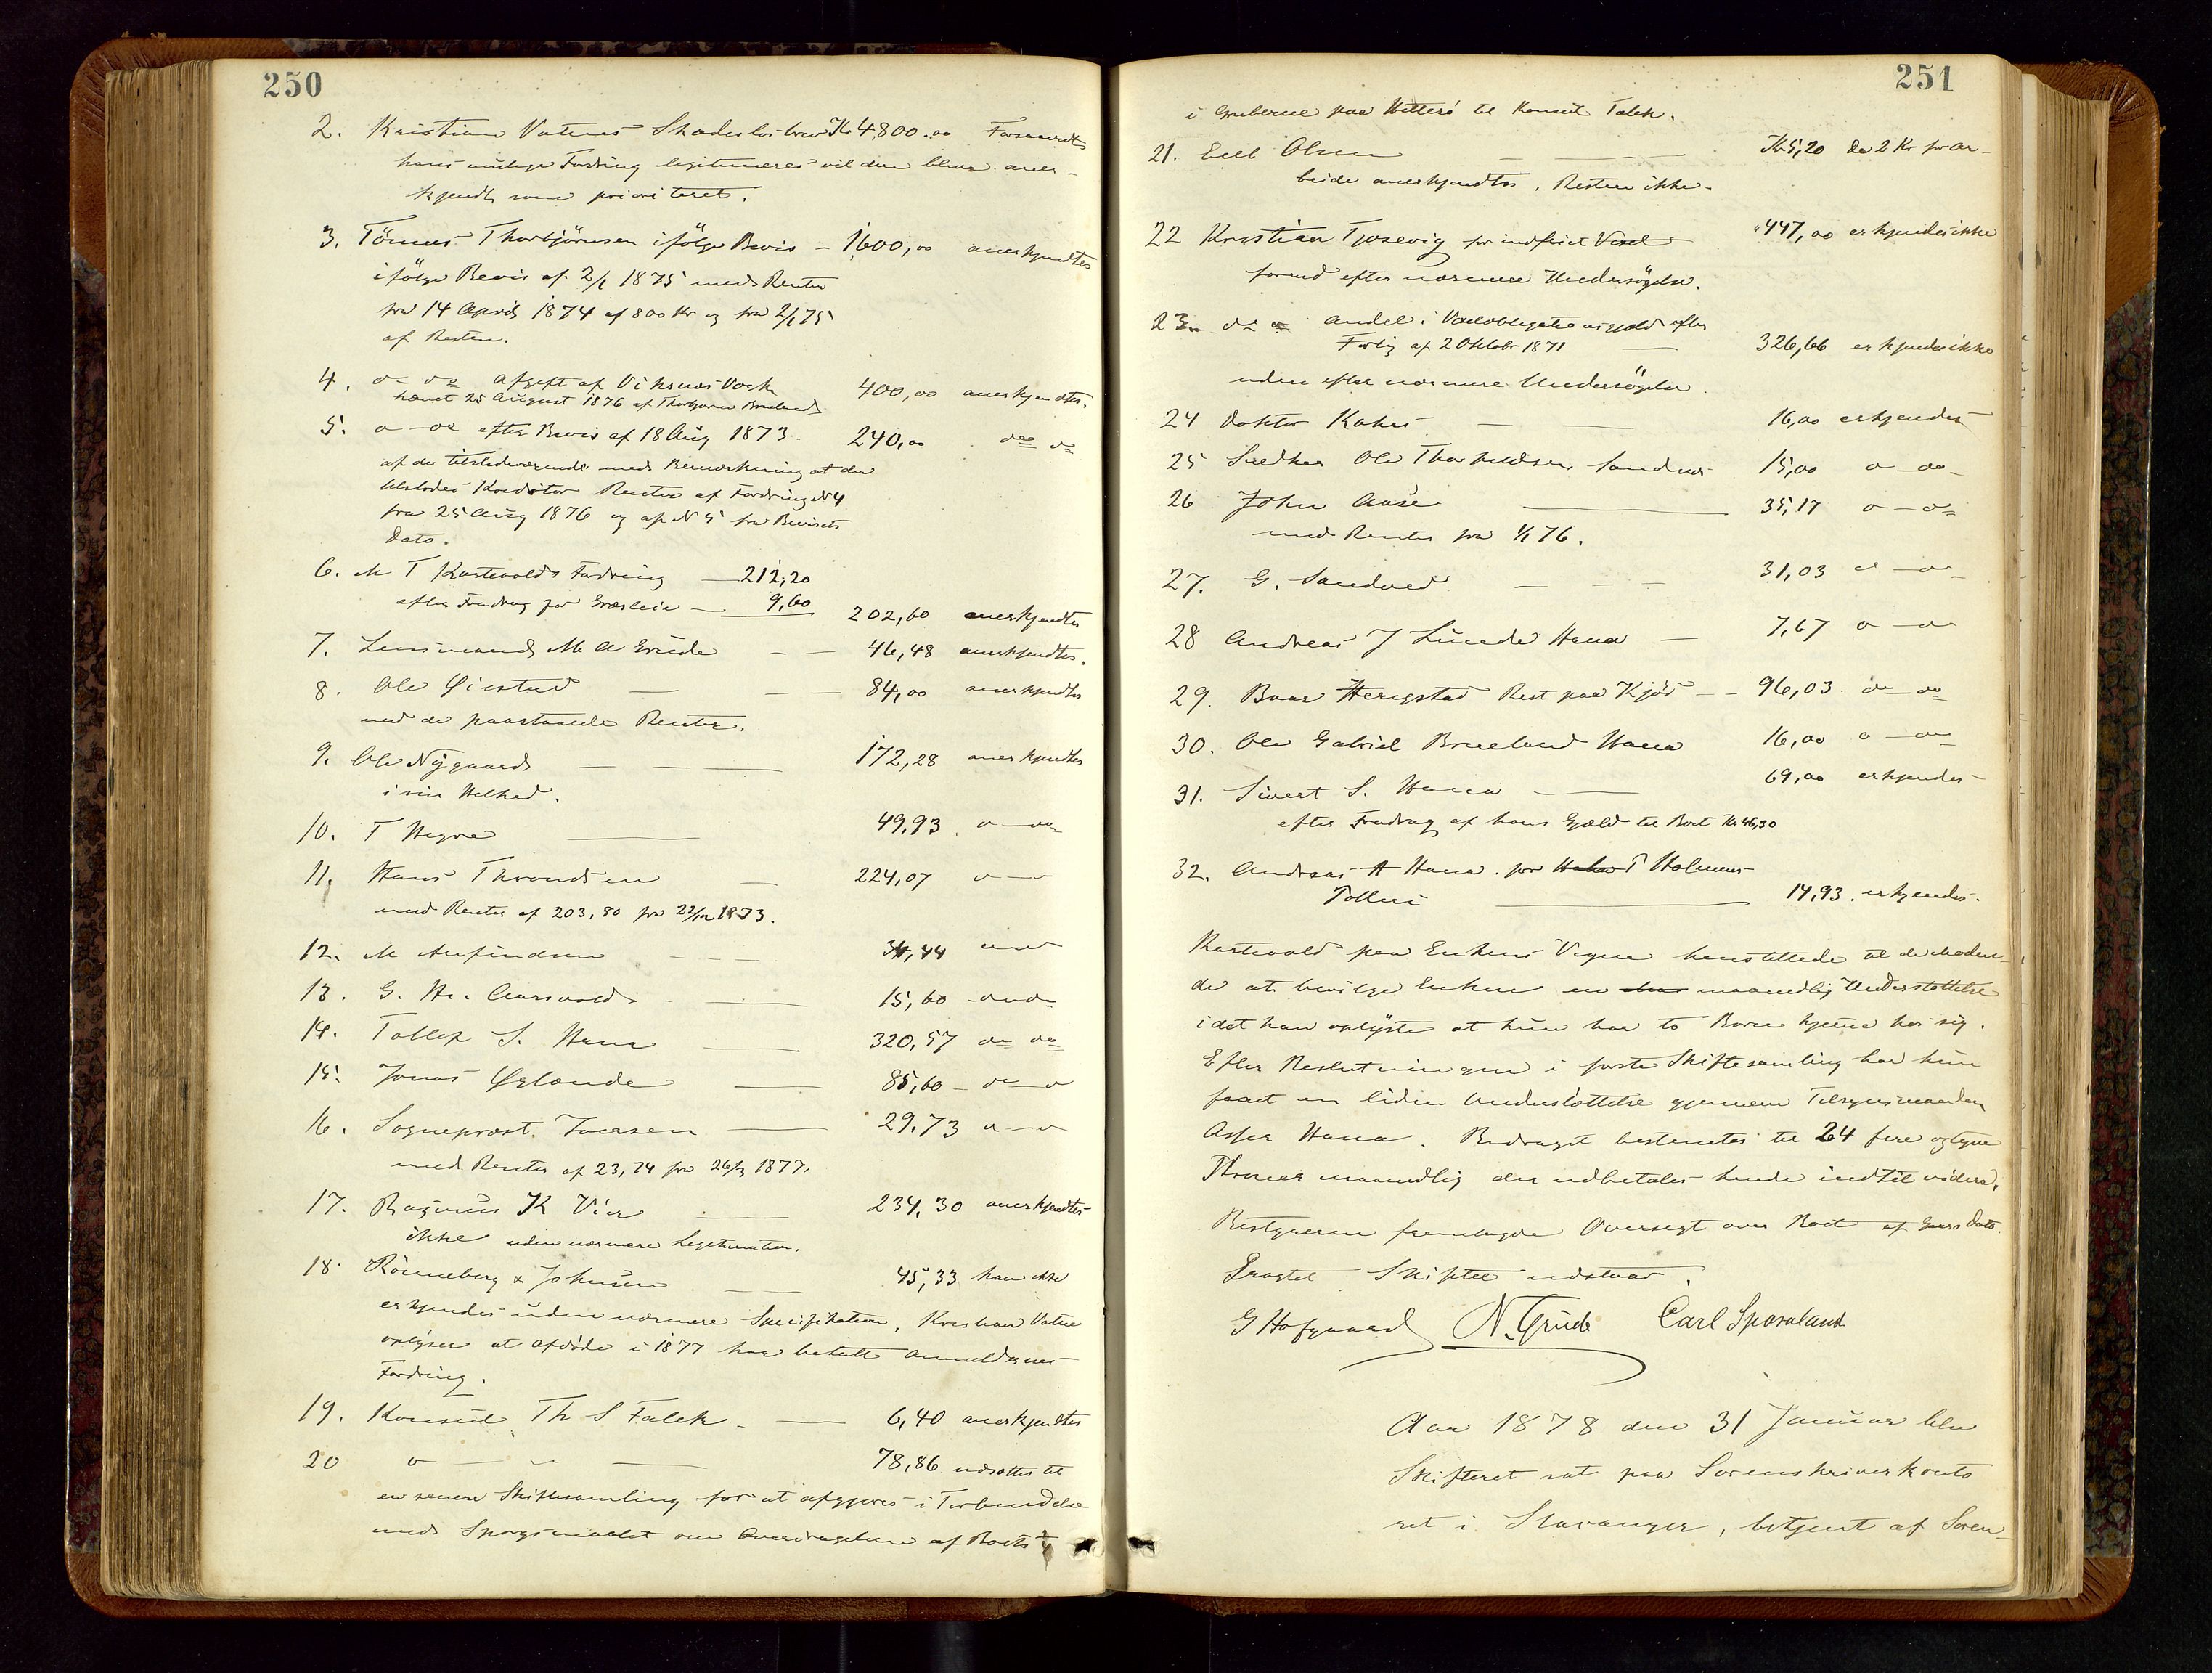 250
2. Kristian Vatnes Skadesløsbrev Kr 4,800.00 Forsaavidt
hans mulige Fordring legitimeres vil den blive aner-
kjendt som prioriteret.
3. Tönnes Thorbjörnsen ifölge Bevis - 1600,00 anerkjendtes
ifölge Bevis af 2/1 1875 med Renter
fra 14 April 1874 af 800 Kr og fra 2/1 75
af Resten.
4. do do Afgift af Viksnes Vask 400,00 anerkjendtes.
hævet 25 August 1876 af Thorbjørn Brueland
5. do do efter Bevis af 18 Aug 1873. 240,00 do do
af de tilstedeværende med Bemærkning at der
tilstodes Kreditor Renter af Fordring N 4
fra 25 Aug 1876 og af N 5 fra Bevisets
Dato.
6. M T Kartevolds Fordring — 212,20
efter Fradrag for Græsleie — 9,60 202,60 anerkjendtes
7. Lensmand M A Grude — — 46,48 anerkjendtes.
8. Ole Øiestad — — 84,00 anerkjendtes
med de paastaaede Renter.
9. Ole Nygaard — — 172,28 anerkjendtes
i sin Helhed.
10. T Hegre — 49,93 do
11. Hans Throndsen — 224,07 do
med Renter af 203,80 fra 22/12 1873.
12. M Anfindsen — — — 34,44 do
13. G. Hr. Aarsvold — 15,60 do
14. Tollef S. Hana — 320,57 do do
15. Jonas Øglænde — 85,60 - do
16. Sogneprest Iversen — 29.73 do
med Renter af 23,74 fra 26/3 1877.
17. Rasmus K Vier — 234,30 anerkjendtes
ikke uden nærmere Legitimation.
18. Rönneberg & Johnsen — 45,33 kan ikke
erkjendes uden nærmere Specifikation, Kristian Vatne
oplyser at afdöde i 1877 har betalt Anmeldernes
Fordring.
19. Konsul Th S Falck — 6,40 anerkjendtes
20 do — 78,86 udsættes til
en senere Skiftesamling for at afgjøres i Forbindelse
med Spørgsmaalet om Overdragelsen af Boets
251
i Gruberne paa Hitterø til Konsul Falck.
21. Eell Olsen — Kr 5,20 De 2 Kr for Ar-
beide anerkjendtes, Resten ikke.
22 Kristian Tjosevig for indfriet Vexel - " 447,00 erkjendes ikke
forend efter nærmere Undersögelse.
23. do andel i Vexelobligations gjæld efter
Forlig af 2 Oktober 1871 — 326,66 erkjendes ikke
uden efter nærmere Undersögelse.
24 Doktor Kahrs — — 16,00 erkjendes
25 Snedker Ole Tharaldsen Sandnes 15,00 do
26 John Aase — 35,17 do
med Renter fra 1/1 76.
27. G. Sandved — — — 31,03 do
28 Andreas J Lunde Hana — 7,67 do
29. Baar Herigstad Rest paa Kjød — 96,03 do do
30. Ole Gabriel Brueland Hana 16,00 do
31. Sivert S. Hana — — 69,00 erkjendes
efter Fradrag af hans Gjæld til Boet Kr 46,30
32. Andreas A Hana for T Holmens
— 14,93. erkjendes.
Kartevold paa Enkens Vegne henstillede til de Møden-
de at bevilge Enken en maanedlig Understøttelse
idet han oplyste at hun har to Børn hjeme hos sig.
Efter Beslutningen i første Skiftesamling har hun
faaet en liden Understöttelse gjennem Tilsynsmanden
Asser Hana. Bidraget bestemtes til 24 fire og tyve
Kroner maanedlig der udbetales hende indtil videre.
Bestyreren fremlagde Oversigt over Boet af Gaars Dato.
Skiftet udstaar.
G Hofgaard N. Grude Carl Sporaland
Aar 1878 den 31 Januar blev
Skifteret sat paa Sorenskriverkonto
ret i Stavanger, betjent af Soren-